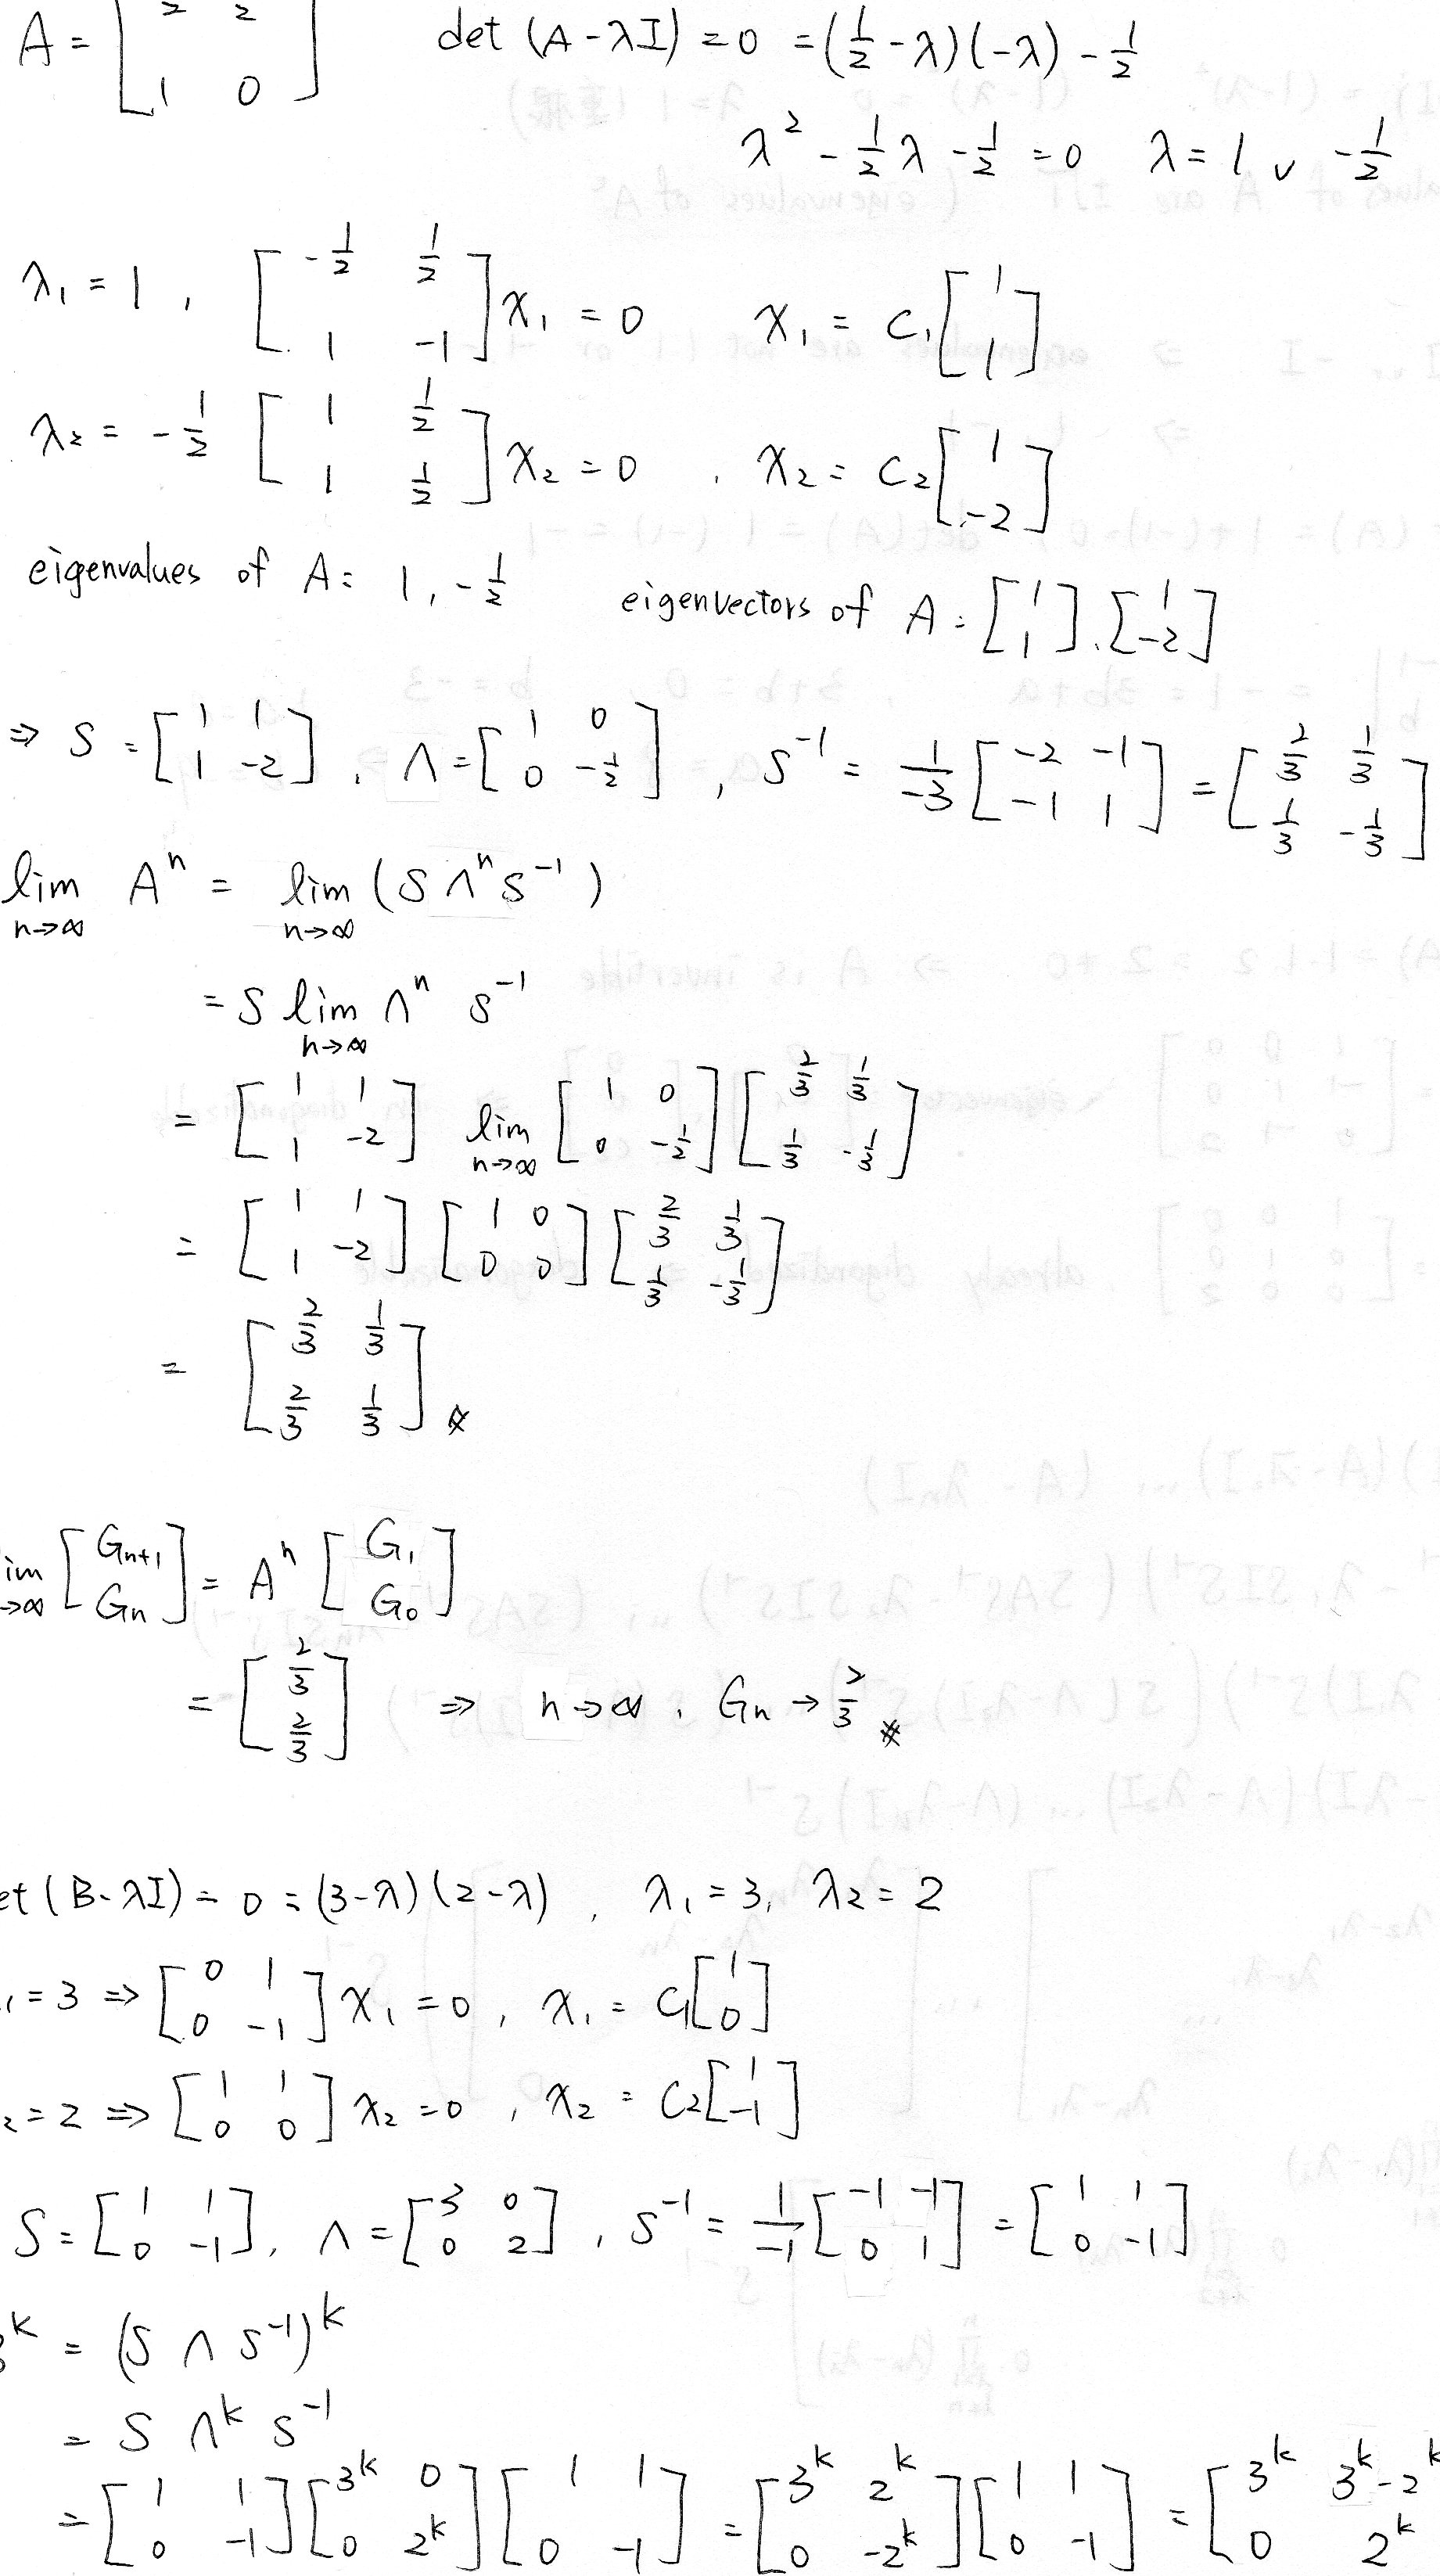 A = [ 2 2 ; 1 0 ] det (A - λI) = 0 = (1/2 - λ)(-λ) - 1/2
λ² - 1/2 λ - 1/2 = 0 λ = 1 ∨ -1/2
λ₁ = 1 , [ -1/2 1/2 ; 1 -1 ] x₁ = 0 x₁ = c₁ [ 1 ; 1 ]
λ₂ = -1/2 [ 1 1/2 ; 1 1/2 ] x₂ = 0 , x₂ = c₂ [ 1 ; -2 ]
eigenvalues of A = 1, -1/2 eigenvectors of A = [ 1 ; 1 ], [ 1 ; -2 ]
⇒ S = [ 1 1 ; 1 -2 ], Λ = [ 1 0 ; 0 -1/2 ], S⁻¹ = 1/-3 [ -2 -1 ; -1 1 ] = [ 2/3 1/3 ; 1/3 -1/3 ]
lim n→∞ Aⁿ = lim n→∞ (S Λⁿ S⁻¹)
= S lim n→∞ Λⁿ S⁻¹
= [ 1 1 ; 1 -2 ] lim n→∞ [ 1 0 ; 0 -1/2 ] [ 2/3 1/3 ; 1/3 -1/3 ]
= [ 1 1 ; 1 -2 ] [ 1 0 ; 0 0 ] [ 2/3 1/3 ; 1/3 -1/3 ]
= [ 2/3 1/3 ; 2/3 1/3 ] ※
im →∞ [ Gn+1 ; Gn ] = Aⁿ [ G₁ ; G₀ ]
= [ 2/3 ; 2/3 ] ⇒ n→∞, Gn → 2/3 ※
et (B - λI) = 0 = (3-λ)(2-λ), λ₁ = 3, λ₂ = 2
₁ = 3 ⇒ [ 0 1 ; 0 -1 ] x₁ = 0, x₁ = c₁ [ 1 ; 0 ]
₂ = 2 ⇒ [ 1 1 ; 0 0 ] x₂ = 0, x₂ = c₂ [ 1 ; -1 ]
S = [ 1 1 ; 0 -1 ], Λ = [ 3 0 ; 0 2 ], S⁻¹ = 1/-1 [ -1 -1 ; 0 1 ] = [ 1 1 ; 0 -1 ]
ᵏ = (S Λ S⁻¹)ᵏ
= S Λᵏ S⁻¹
= [ 1 1 ; 0 -1 ] [ 3ᵏ 0 ; 0 2ᵏ ] [ 1 1 ; 0 -1 ] = [ 3ᵏ 2ᵏ ; 0 -2ᵏ ] [ 1 1 ; 0 -1 ] = [ 3ᵏ 3ᵏ-2ᵏ ; 0 2ᵏ